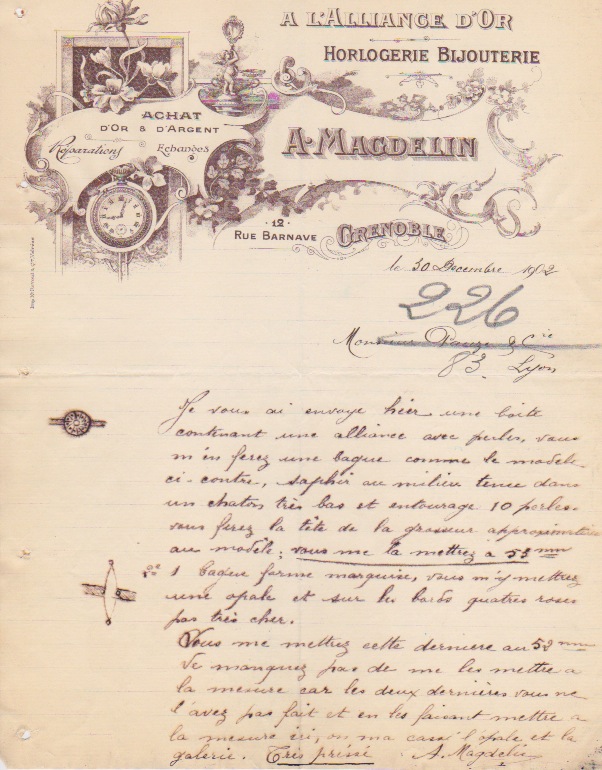 A L'ALLIANCE D'OR
HORLOGERIE BIJOUTERIE
ACHAT
D'OR & D'ARGENT
Réparations Echanges
A. MAGDELIN
12
RUE BARNAVE GRENOBLE
le 30 Decembre 1902
226
Monsieur & Cie
83 Lyon
Je vous ai envoyé hier une boite
contenant une alliance avec perles, vous
m'en ferez une bague comme le modele
ci-contre, saphir au milieu tenue dans
un chaton très bas et entourage 10 perles.
vous ferez la tête de la grosseur approximative
au modele; vous me la mettrez à 53 mm
1 bague forme marquise, vous m'y mettrez
une opale et sur les bords quatres roses
pas très cher.
Vous me mettrez cette derniere au 52 mm
Ne manquez pas de me les mettre a
la mesure car les deux dernières vous ne
l'avez pas fait et en les faisant mettre a
la mesure ici, on m'a cassé l'opale et la
galerie. Très pressé A. Magdelin